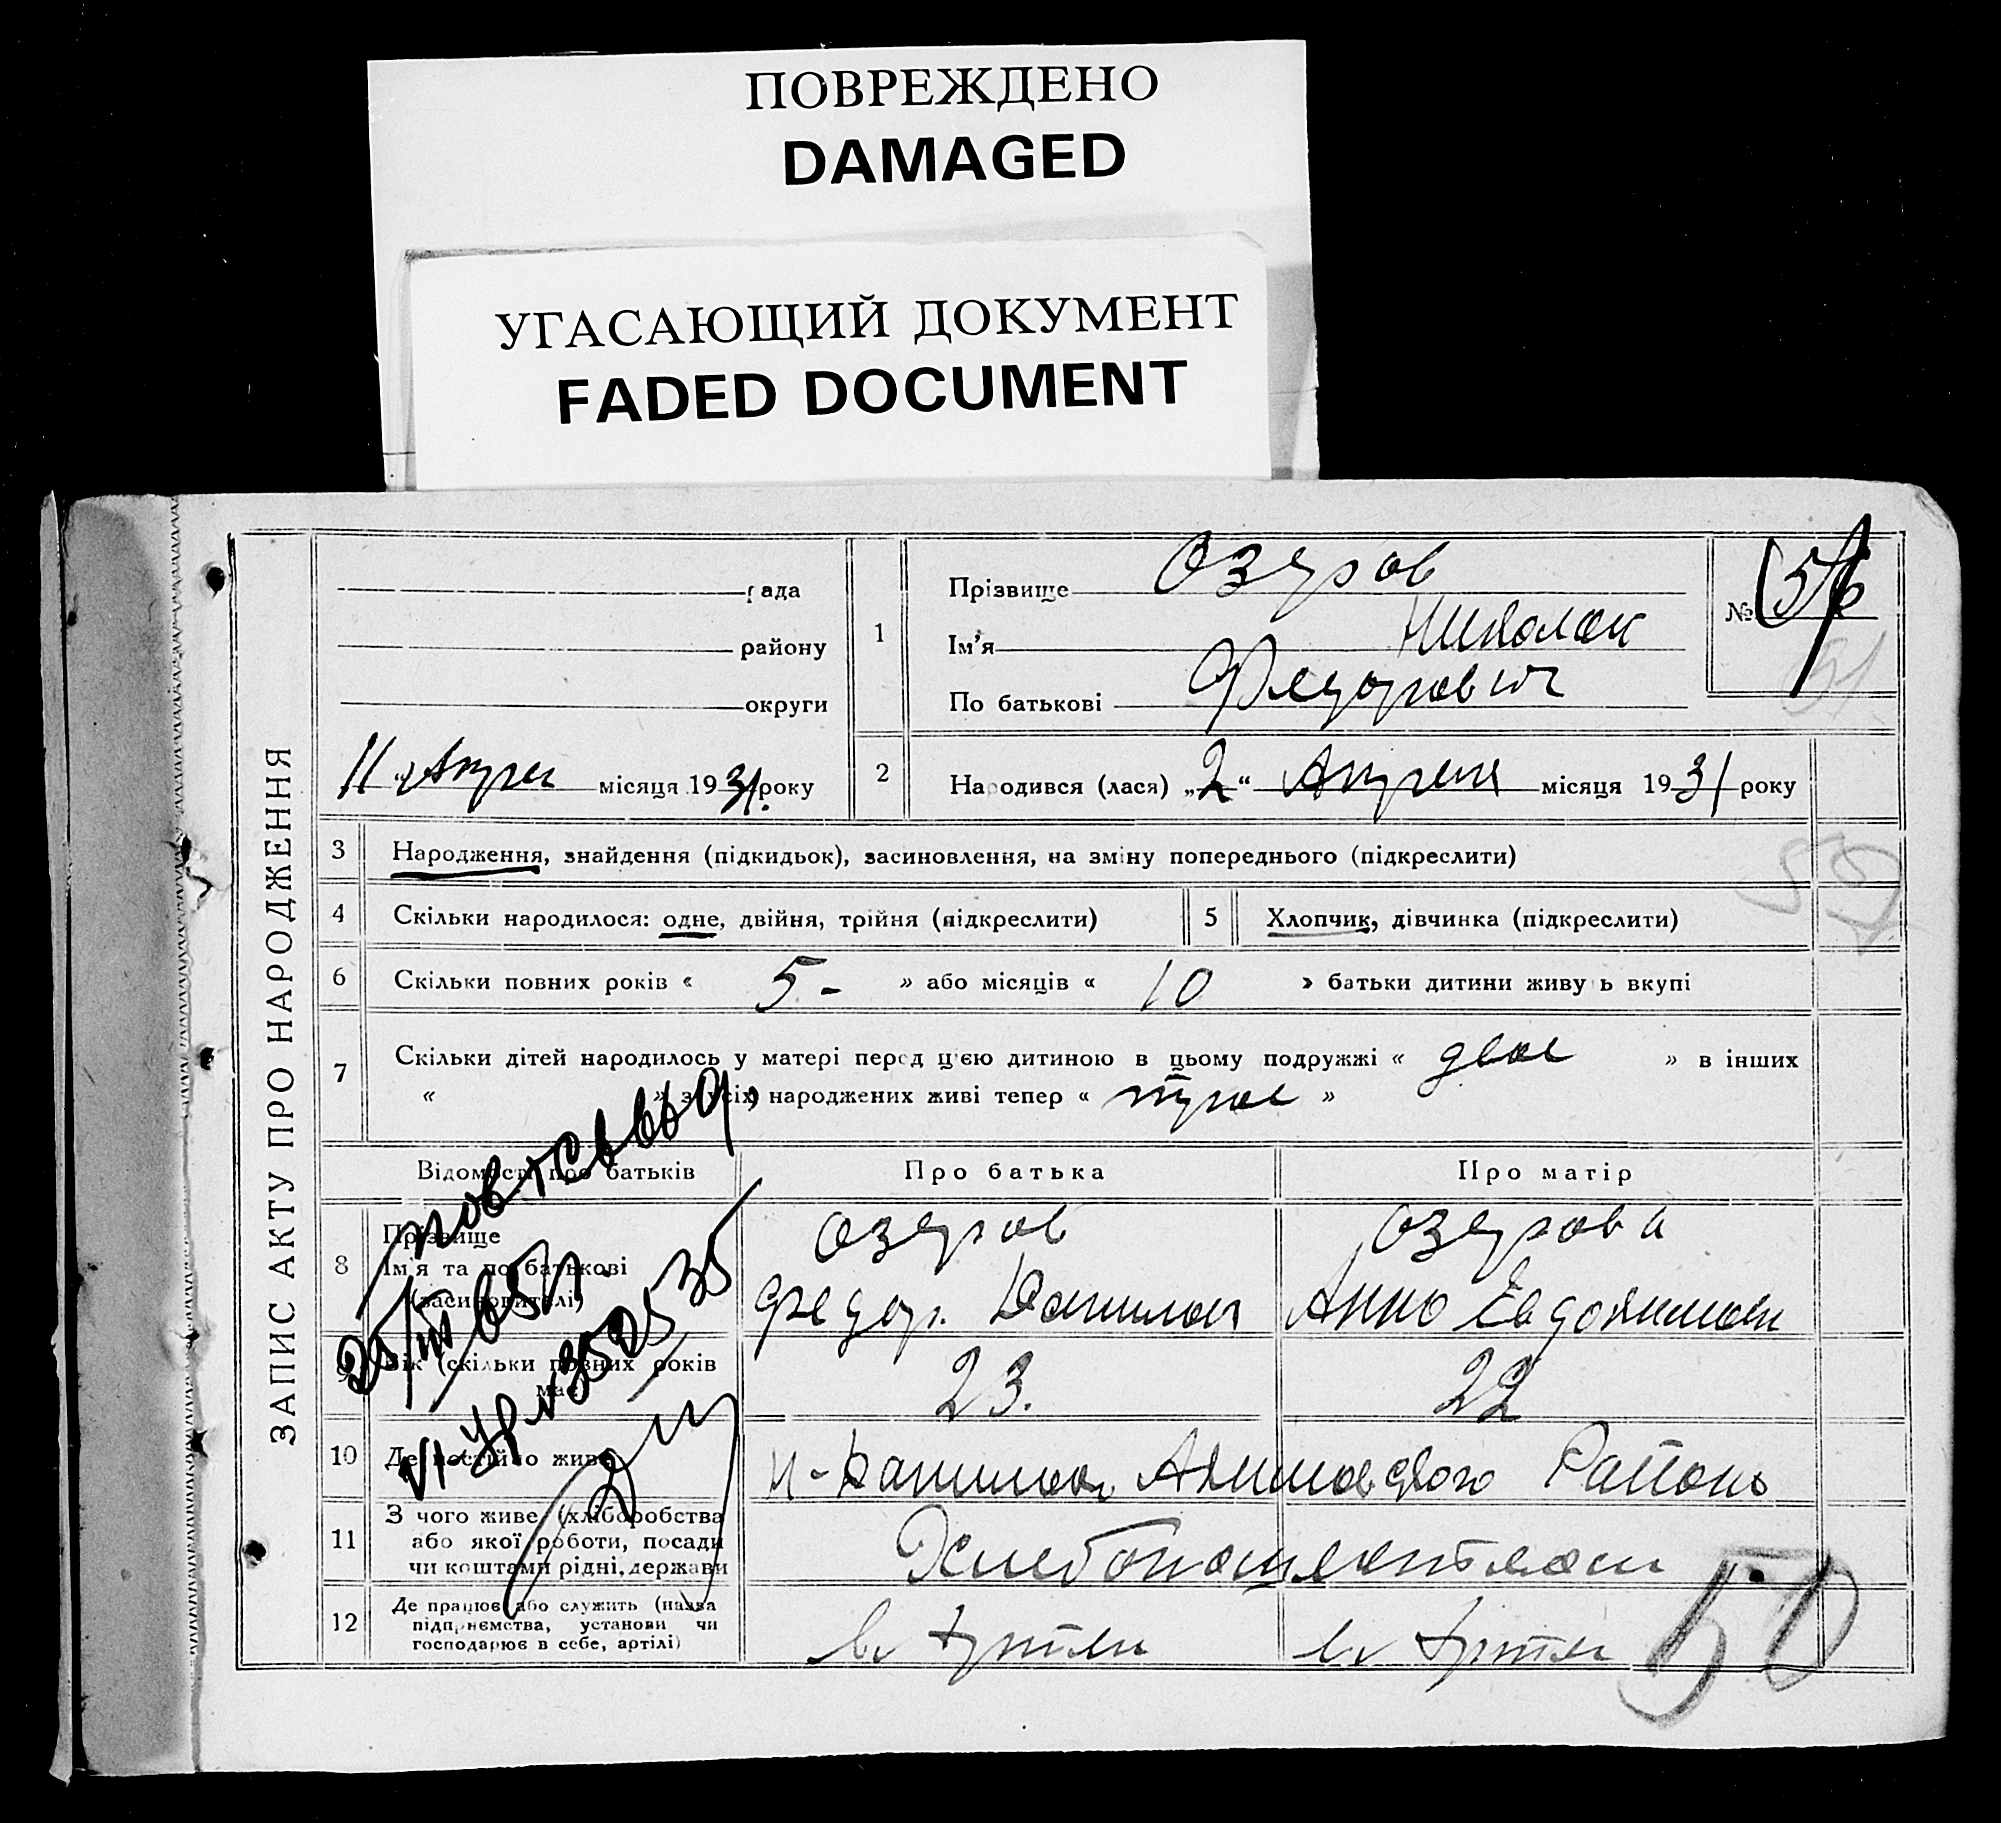 ПОВРЕЖДЕНО
DAMAGED
УГАСАЮЩИЙ ДОКУМЕНТ
FADED DOCUMENT
ЗАПИС АКТУ ПРО НАРОДЖЕННЯ
рада
району
округи
11 місяця 1931. року
1
Прізвище Озеров
Ім’я Николай
По батькові Федорович
№
51
2 Народився (лася) „2“ Апреля місяця 1931 року
3 Народження, знайдення (підкидьок), засиновлення, на зміну попереднього (підкреслити)
4 Скільки народилося: одне, двійня, трійня (підкреслити) 5 Хлопчик, дівчинка (підкреслити)
6 Скільки повних років « 5- » або місяців « 10 » батьки дитини живуть вкупі
7 Скільки дітей народилось у матері перед цією дитиною в цьому подружжі « двое » в інших
« » з усіх народжених живі тепер « трое »
Відомості про батьків Про батька Про матір
8 Прізвище Озеров Озерова
Ім’я та по батькові Федор. Данилов Анна Евдокимов
(засиновителі)
9 Вік (скільки повних років має) 23. 22
10 Де постійно живе Акимовского Района
11 З чого живе (хліборобства
або якої роботи, посади
чи коштами рідні, держави
12 Де працює або служить (назва
підприємства, установи чи
господарює в себе, артілі)
в Артели в Артели
50